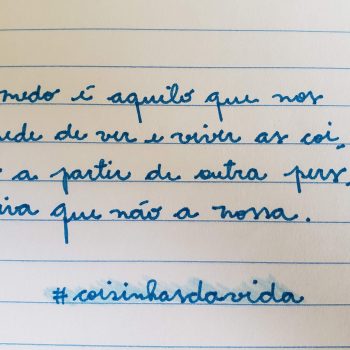 medo é aquilo que nos
ede de ver e viver as coi
a partir de outra pers
iva que não a nossa.
#coisinhasdavida